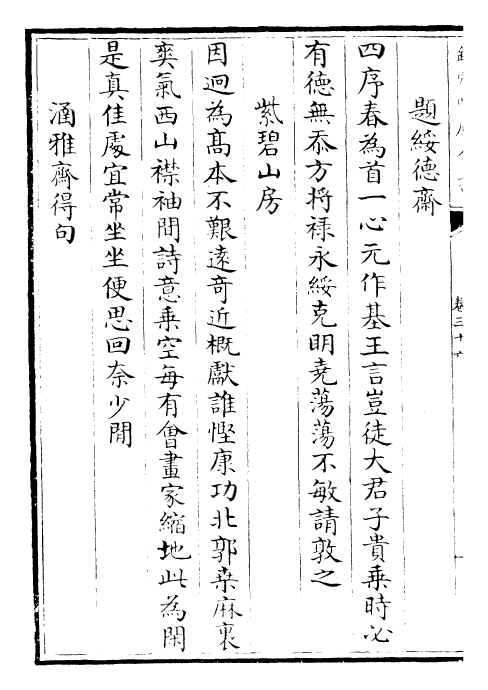 題綏德齋
四序春為首一心元作基王言豈徒大君子貴乗時必
有德無忝方将禄永綏克明堯蕩蕩不敏請敦之
紫碧山房
因迥為髙本不艱遠奇近概獻誰慳康功北郭桒麻裏
爽氣西山襟袖間詩意乗空每有㑹畫家縮地此為閑
是真佳處宜常坐坐便思回奈少閒
涵雅齋得句